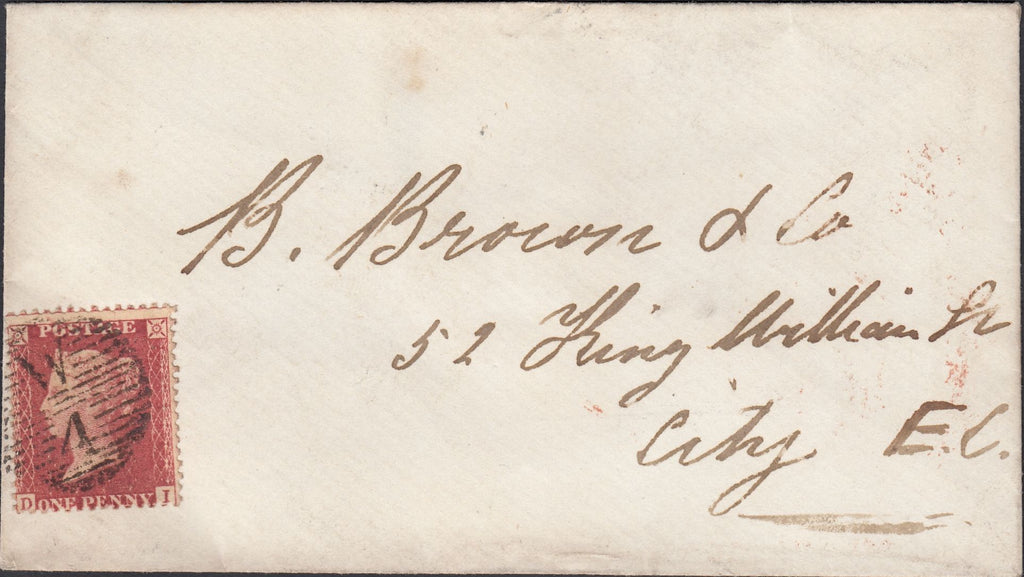 B. Brown & Co
52 King William St
City E.C.
POSTAGE
W
4
D ONE PENNY I